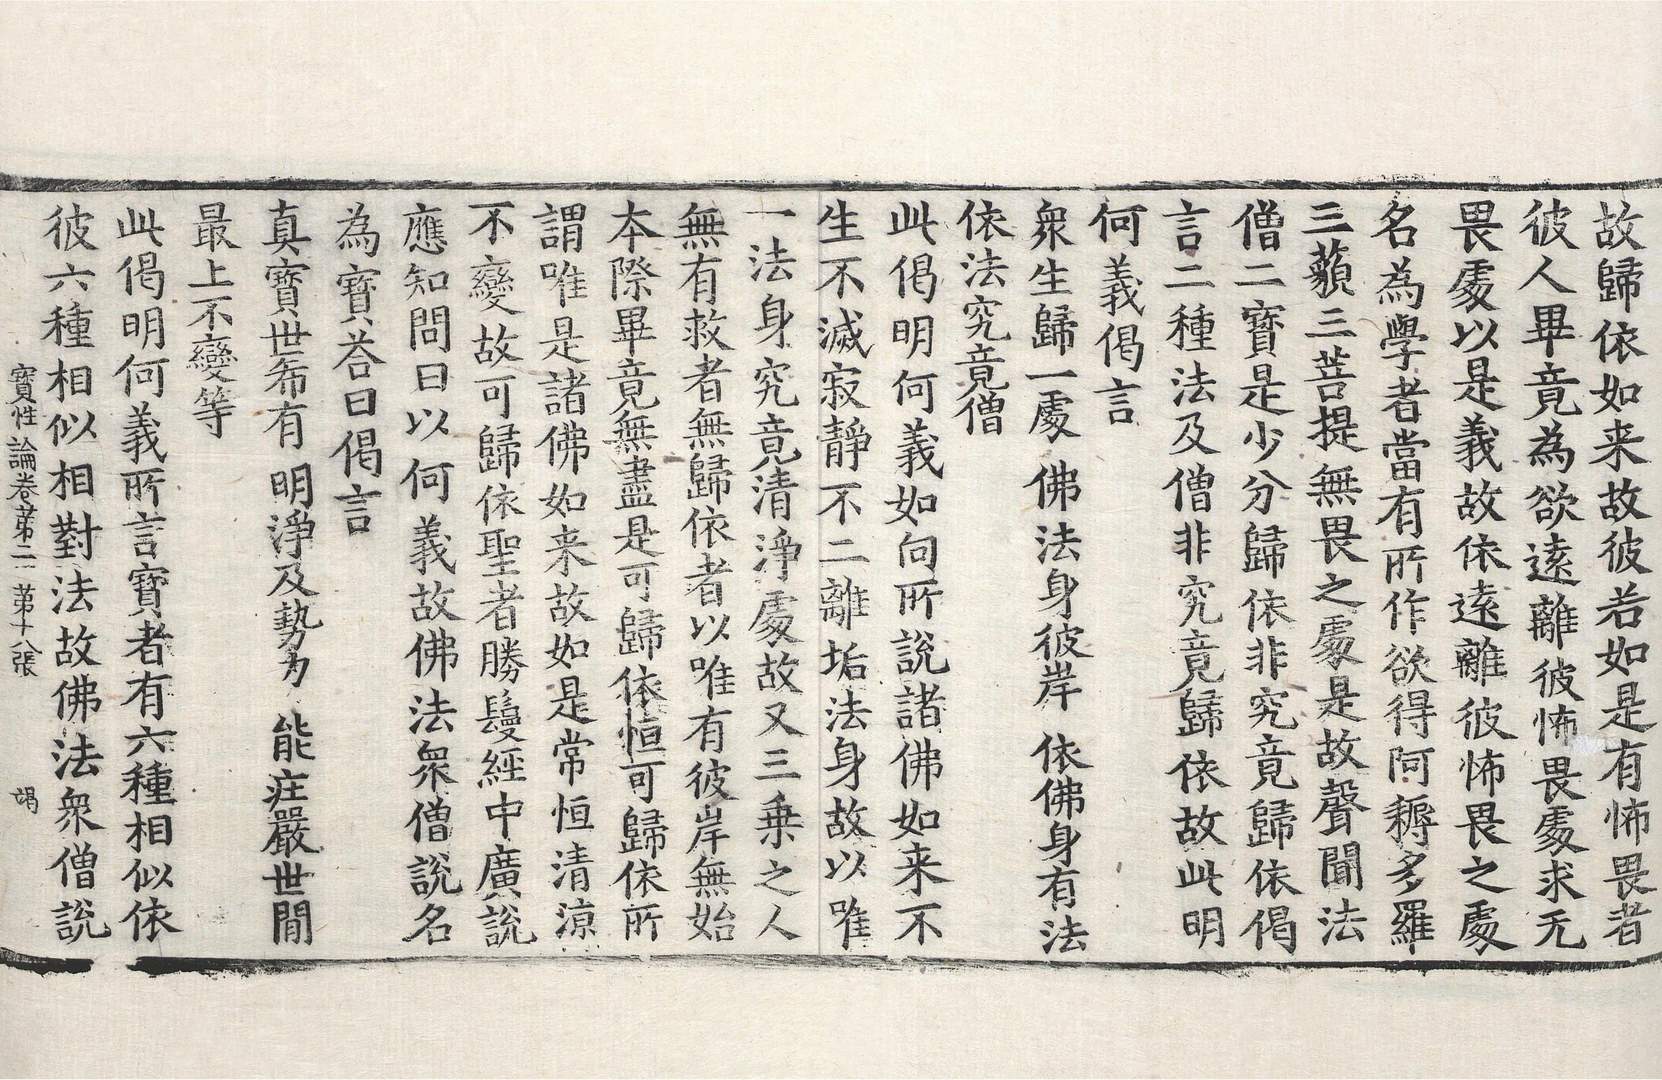 故歸依如来故彼若如是有怖畏者
彼人畢竟為欲逺離彼怖畏處求无
畏處以是義故依逺離彼怖畏之處
名為學者當有所作欲得阿耨多羅
三藐三菩提無畏之處是故聲聞法
僧二寳是少分歸依非究竟歸依偈
言二種法及僧非究竟歸依故此明
何義偈言
衆生歸一處 佛法身彼岸 依佛身有法
依法究竟僧
此偈明何義如向所說諸佛如来不
生不滅寂靜不二離垢法身故以唯
一法身究竟清淨處故又三乗之人
無有救者無歸依者以唯有彼岸無始
本際畢竟無盡是可歸依恒可歸依所
謂唯是諸佛如来故如是常恒清涼
不變故可歸依聖者勝鬘經中廣說
應知問曰以何義故佛法衆僧說名
為寳荅曰偈言
真寳世希有 明淨及勢力 能荘嚴世間
最上不變等
此偈明何義所言寳者有六種相似依
彼六種相似相對法故佛法衆僧說
寳性論卷苐二 苐十八張 竭